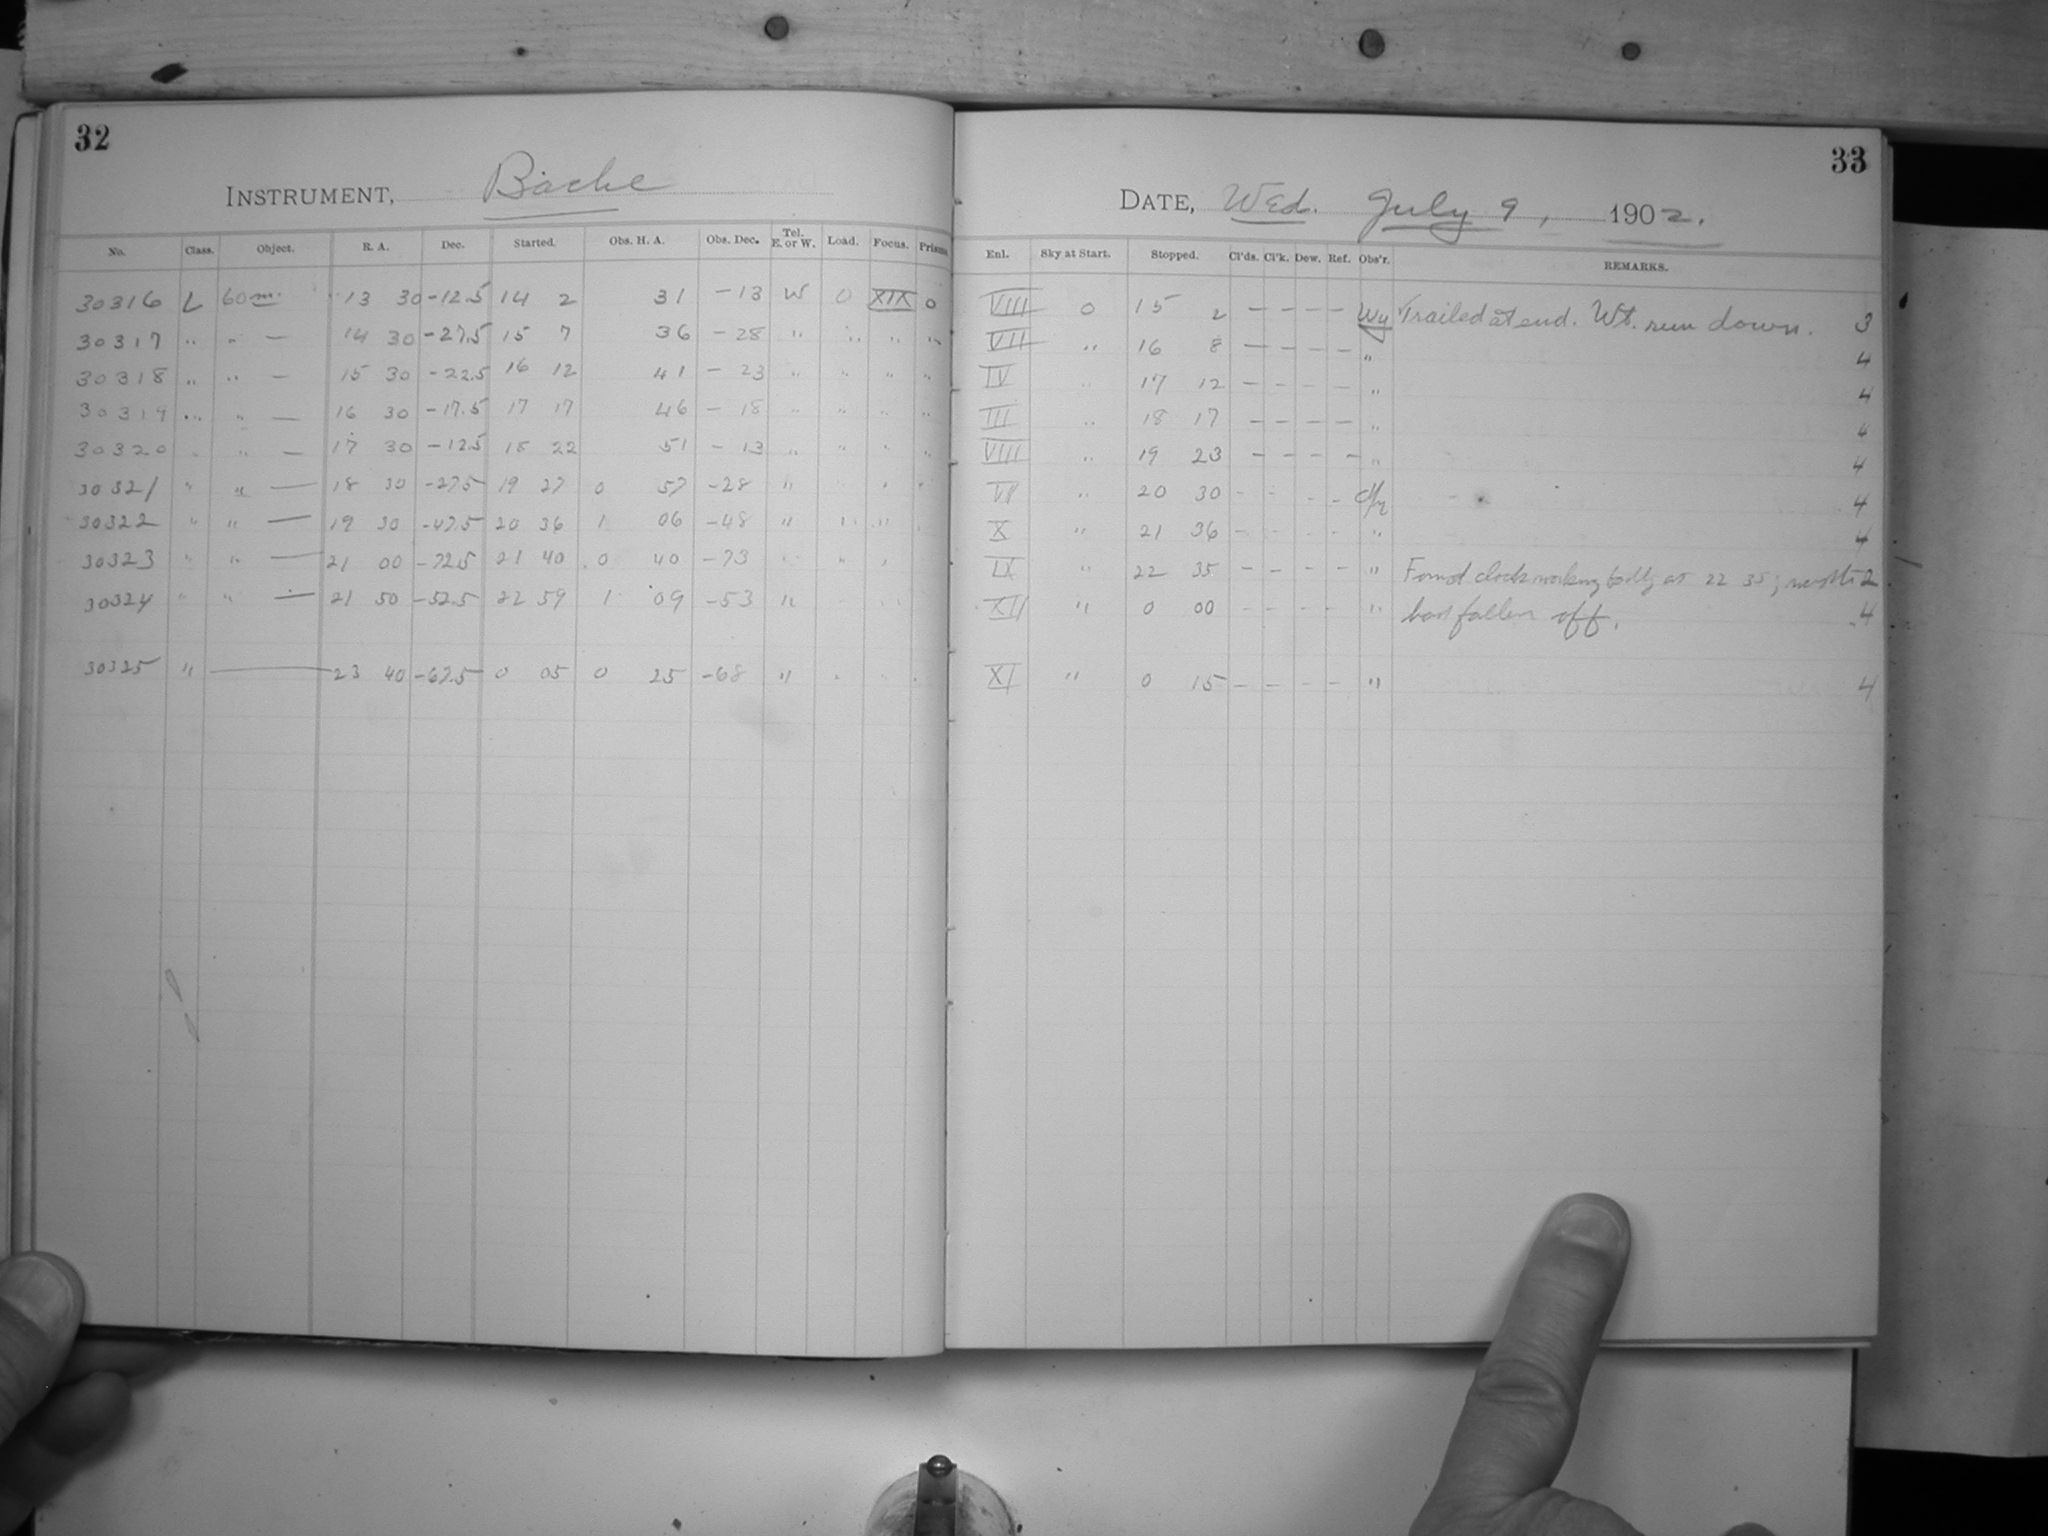 32
INSTRUMENT, Bache
No. Class. Object. R. A. Dec. Started. Obs. H. A. Obs. Dec. Tel. E. or W. Load. Focus. Prisms.
30316 L 60m. 13 30 -12.5 14 2 31 -13 W 0 XIX 0
30317 " " — 14 30 -27.5 15 7 36 -28 " " " "
30318 " " — 15 30 -22.5 16 12 41 -23 " " " "
30319 " " — 16 30 -17.5 17 17 46 -18 " " " "
30320 " " — 17 30 -12.5 18 22 51 -13 " " " "
30321 " " — 18 30 -27.5 19 27 0 57 -28 " " " "
30322 " " — 19 30 -47.5 20 36 1 06 -48 " " " "
30323 " " — 21 00 -72.5 21 40 0 40 -73 " " "
30324 " " — 21 50 -52.5 22 59 1 09 -53 " " "
30325 " — 23 40 -67.5 0 05 0 25 -68 " " " "
33
DATE, Wed. July 9, 1902.
Enl. Sky at Start. Stopped. Cl'ds. Cl'k. Dew. Ref. Obs'r. REMARKS.
VIII 0 15 2 — — — — Wy Trailed at end. Wt. run down. 3
VII " 16 8 — — — — " 4
IV " 17 12 — — — — " 4
III " 18 17 — — — — " 4
VIII " 19 23 — — — — " 4
VII " 20 30 - - - - 4
X " 21 36 - - - - " 4
IX " 22 35 - - - - " Found clock working badly at 22 35; weights 2
XII " 0 00 - - - - " had fallen off. 4
XI " 0 15 — — — — " 4